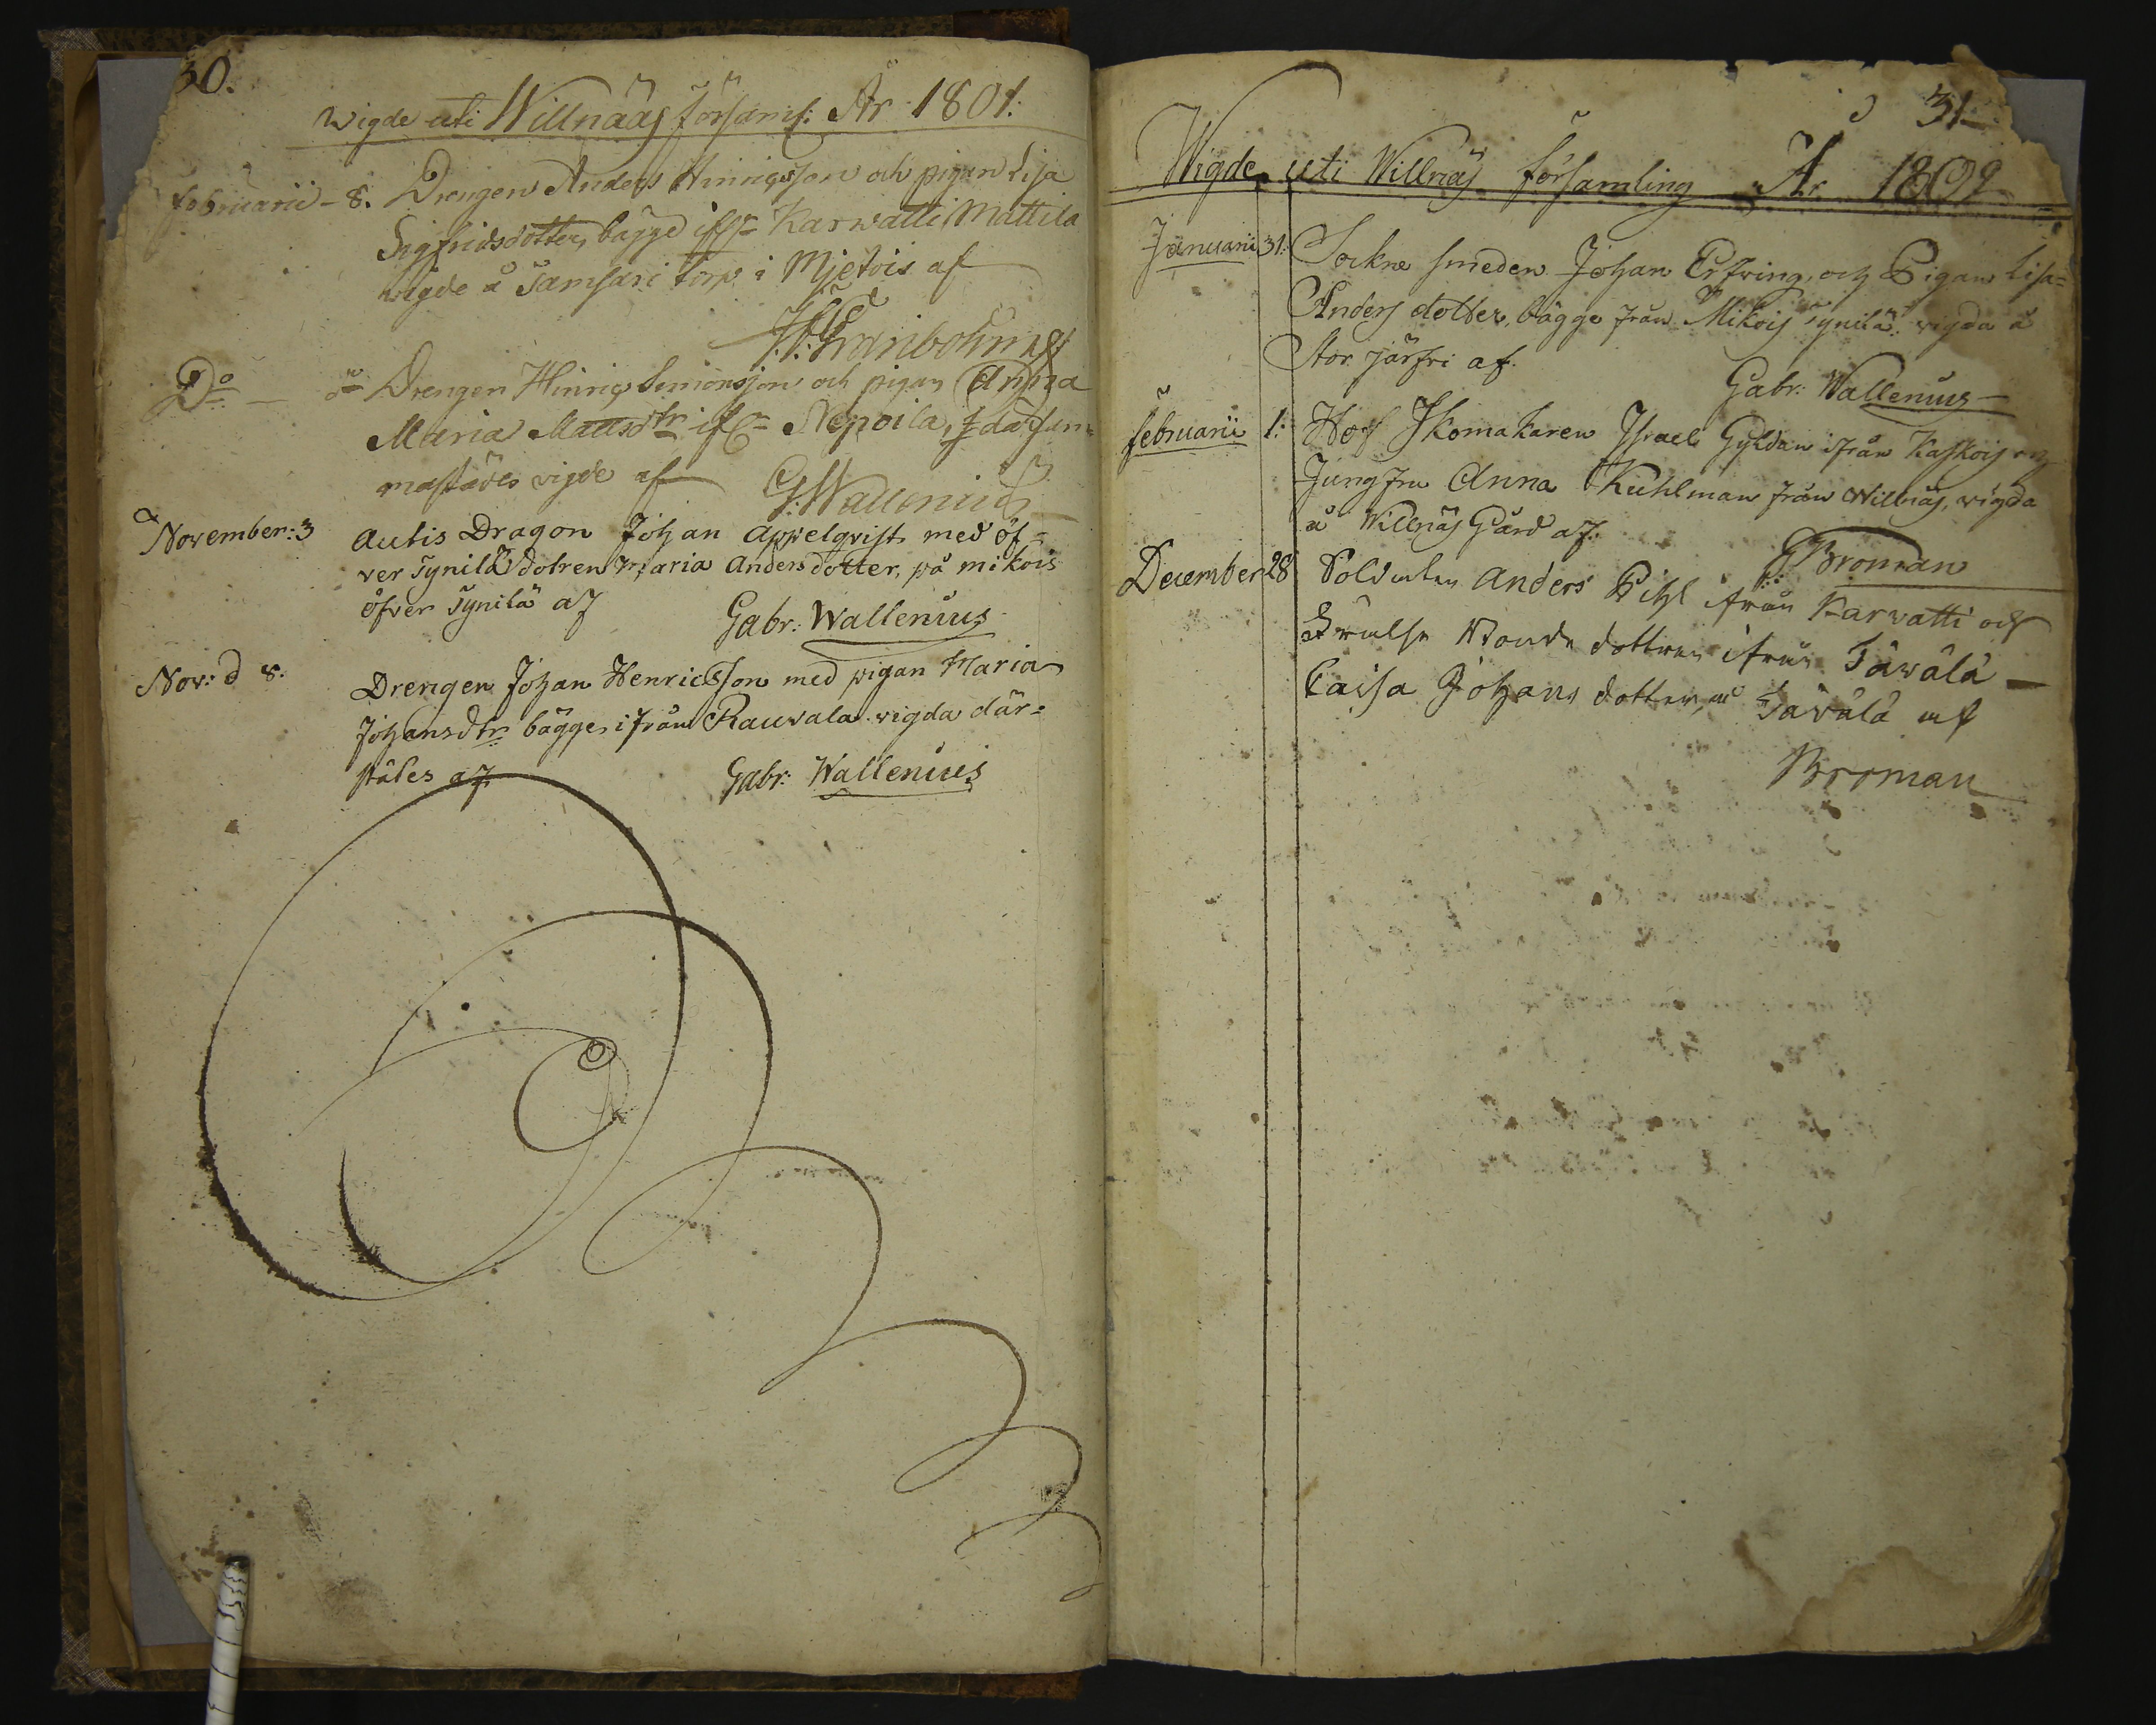 30.
Wigde uti Willnääs församl: År 1801:
Februarii - 8. Drengen Anders Hinrigsson och pigan Lisa
Sigfridsdotter, bägge ifrn Karwatti Mattila
wigde å Samsari torp i Mjetois af
Do - Drengen Hinrig Simonsson och pigan Anna
Maria Mattsdtr ifrn Nepoila,
wigde af G: Wallenius
November: 3 Autis Dragon Johan Appelqvist med öf-
ver Tynilä dotren Maria Andersdotter, på mikois
öfver Tynilä af Gabr: Wallenius
Nov: d 8. Drengen Johan Henricsson med pigan Maria
Johansdtr bägge ifrån Rauvala vigda där-
städes af Gabr: Wallenius
31
Wigde uti Willnäs församling År 1802
Januarii 31: Sockne smeden Johan Erfving, och Pigan Lisa
Anders dotter, bägge från Mikois Tynilä vigda å
Stor järfri af.
Gabr: Wallenius
Februarii 1: Hof Skomakaren Israel Gyldan ifrån Kaskois och
Jungfru Anna Kuhlman från Willnäs, vigda
å Willnäs Gård af.
Broman
December 28 Soldaten Anders Pihl ifrån Karvatti och
Frälse Bonde dottren ifrån Tävälä
Caisa Johans dotter, å Tävälä af
Broman